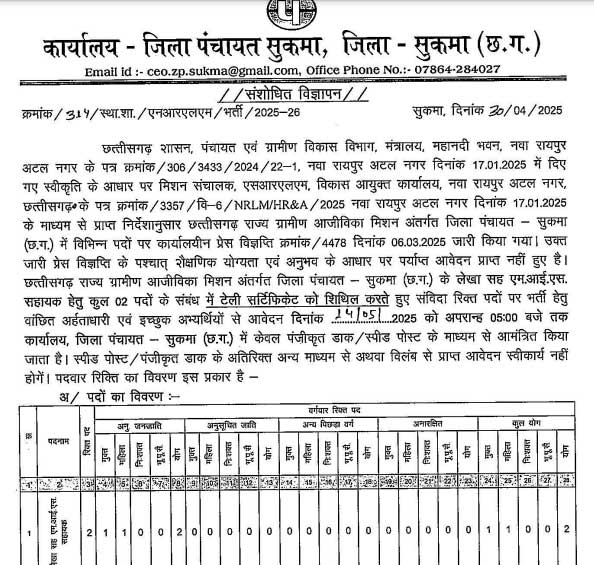 कार्यालय - जिला पंचायत सुकमा, जिला - सुकमा (छ.ग.)
Email id :- ceo.zp.sukma@gmail.com, Office Phone No.:- 07864-284027
//संशोधित विज्ञापन//
क्रमांक/314/स्था.शा./एनआरएलएम/भर्ती/2025-26 सुकमा, दिनांक 30/04/2025
छत्तीसगढ़ शासन, पंचायत एवं ग्रामीण विकास विभाग, मंत्रालय, महानदी भवन, नवा रायपुर
अटल नगर के पत्र क्रमांक/306/3433/2024/22-1, नवा रायपुर अटल नगर दिनांक 17.01.2025 में दिए
गए स्वीकृति के आधार पर मिशन संचालक, एसआरएलएम, विकास आयुक्त कार्यालय, नवा रायपुर अटल नगर,
छत्तीसगढ़ के पत्र क्रमांक/3357/वि-6/NRLM/HR&A/2025 नवा रायपुर अटल नगर दिनांक 17.01.2025
के माध्यम से प्राप्त निर्देशानुसार छत्तीसगढ़ राज्य ग्रामीण आजीविका मिशन अंतर्गत जिला पंचायत - सुकमा
(छ.ग.) में विभिन्न पदों पर कार्यालयीन प्रेस विज्ञप्ति क्रमांक/4478 दिनांक 06.03.2025 जारी किया गया। उक्त
जारी प्रेस विज्ञप्ति के पश्चात् शैक्षणिक योग्यता एवं अनुभव के आधार पर पर्याप्त आवेदन प्राप्त नहीं हुए है।
छत्तीसगढ़ राज्य ग्रामीण आजीविका मिशन अंतर्गत जिला पंचायत - सुकमा (छ.ग.) के लेखा सह एम.आई.एस.
सहायक हेतु कुल 02 पदों के संबंध में टेली सर्टिफिकेट को शिथिल करते हुए संविदा रिक्त पदों पर भर्ती हेतु
वांछित अर्हताधारी एवं इच्छुक अभ्यर्थियों से आवेदन दिनांक 14/05/2025 को अपरान्ह 05:00 बजे तक
कार्यालय, जिला पंचायत - सुकमा (छ.ग.) में केवल पंजीकृत डाक/स्पीड पोस्ट के माध्यम से आमंत्रित किया
जाता है। स्पीड पोस्ट/पंजीकृत डाक के अतिरिक्त अन्य माध्यम से अथवा विलंब से प्राप्त आवेदन स्वीकार्य नहीं
होगें। पदवार रिक्ति का विवरण इस प्रकार है -
अ/ पदों का विवरण :-
वर्गवार रिक्त पद
क्र पदनाम रिक्त पद अनु. जनजाति अनुसूचित जाति अन्य पिछड़ा वर्ग अनारक्षित कुल योग
मुक्त महिला निःशक्त भू.पू.सै. योग मुक्त महिला निःशक्त भू.पू.सै. योग मुक्त महिला निःशक्त भू.पू.सै. योग मुक्त महिला निःशक्त भू.पू.सै. योग मुक्त महिला निःशक्त भू.पू.सै. योग
1 2 3 4 5 6 7 8 9 10 11 12 13 14 15 16 17 18 19 20 21 22 23 24 25 26 27 28
1 सह एम.आई.एस. सहायक 2 1 1 0 0 2 0 0 0 0 0 0 0 0 0 0 0 0 0 0 0 1 1 0 0 2